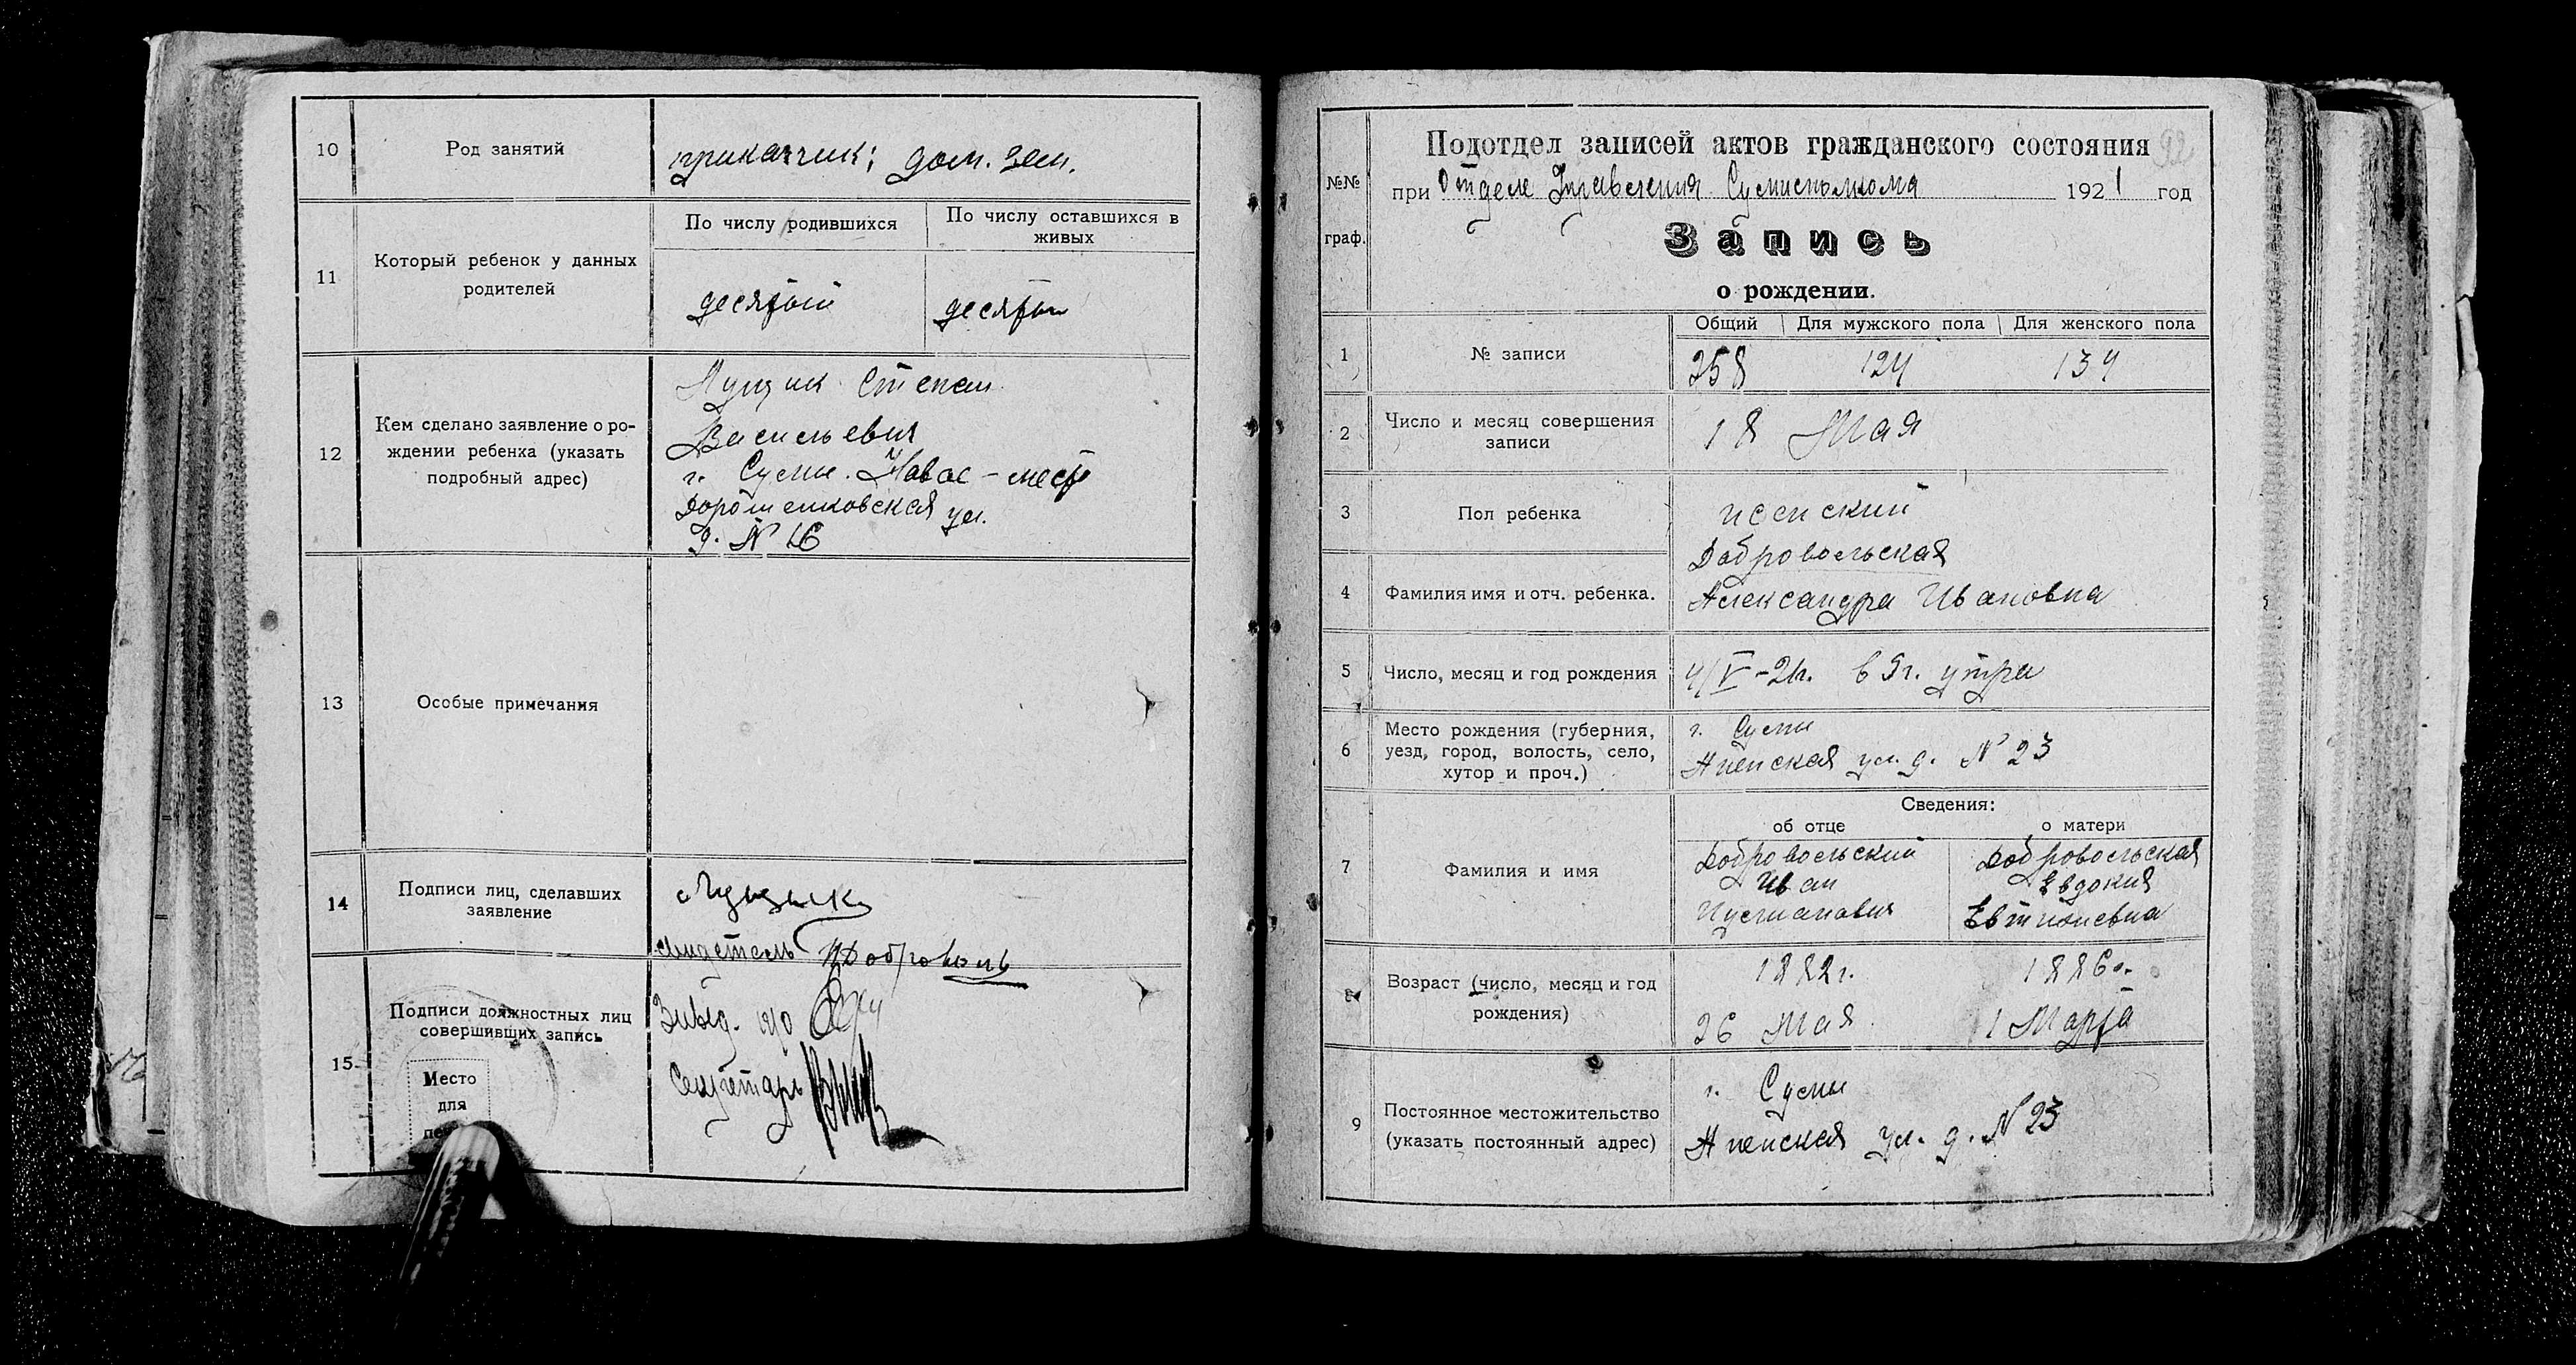 10
Род занятий
приказчик; дом. зем.
11
Который ребенок у данных
родителей
По числу родившихся
По числу оставшихся в
живых
десятый
десятый
12
Кем сделано заявление о ро-
ждении ребенка (указать
подробный адрес)
Степан
Васильевич
г. Сумы. Новос-мест
Дорошенковская ул.
д. № 16
13
Особые примечания
14
Подписи лиц, сделавших
заявление
свидетель
15
Подписи должностных лиц
совершивших запись
Место
для
Завед. п/о
Секретарь
92
№№
граф.
Подотдел записей актов гражданского состояния
при Отделе Управления Сумисполкома 1921 год
Запись
о рождении.
1
№ записи
Общий
Для мужского пола
Для женского пола
258
124
134
2
Число и месяц совершения
записи
18 Мая
3
Пол ребенка
женский
4
Фамилия имя и отч. ребенка.
Добровольская
Александра Ивановна
5
Число, месяц и год рождения
4/V-21г. в 5г. утра
6
Место рождения (губерния,
уезд, город, волость, село,
хутор и проч.)
г. Сумы
ул. д. № 23
7
Фамилия и имя
Сведения:
об отце
о матери
Добровольский
Иван
Добровольская
Евдокия
8
Возраст (число, месяц и год
рождения)
1882г.
26 Мая
1886г.
1 Марта
9
Постоянное местожительство
(указать постоянный адрес)
г. Сумы
ул. д. № 23